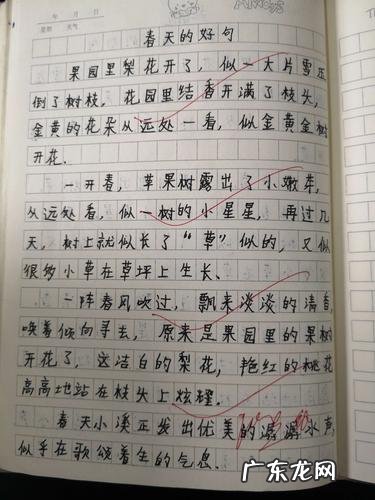 年 月 日
星期 天气
春天的好句
果园里梨花开了，似一大片雪压
倒了树枝，花园里结香开满了枝头，
金黄的花朵从远处一看，似金黄金树
开花．
一开春，苹果树露出了小嫩芽，
从远处看，似一树的小星星，再过几
天，树上就似长了“草”似的，又似
很多小草在草坪上生长．
一阵春风吹过，飘来淡淡的清香，
嗅着倾向寻去，原来是果园里的果树
开花了，这洁白的梨花，艳红的桃花
高高地站在枝头上炫耀．
春天小溪正发出优美的潺潺水声，
似乎在歌颂着生的气息．
广东龙网